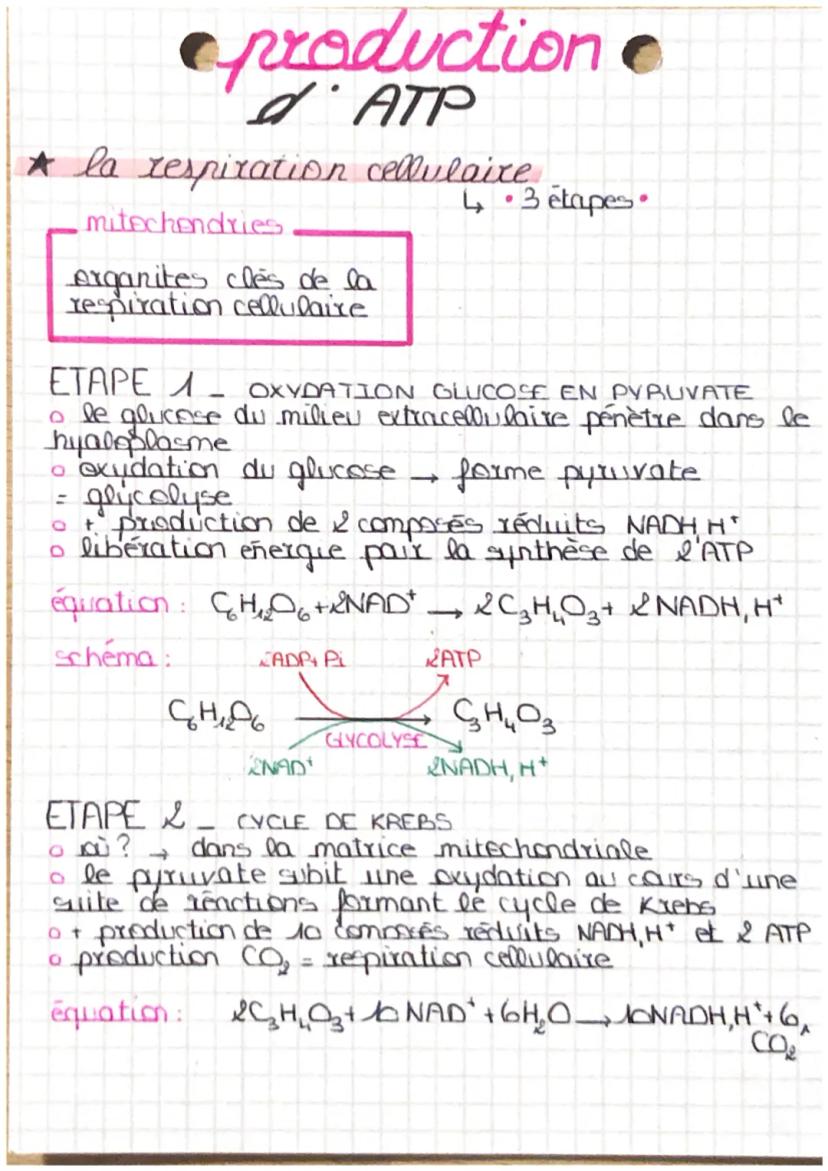 production
d'ATP
★ la respiration cellulaire
↳ • 3 étapes •
mitochondries
organites clés de la
respiration cellulaire
ETAPE 1 _ OXYDATION GLUCOSE EN PYRUVATE
o le glucose du milieu extracellulaire pénètre dans le
hyaloplasme
o oxydation du glucose → forme pyruvate
= glycolyse
o + production de 2 composés réduits NADH, H⁺
o libération énergie pour la synthèse de l'ATP
équation : C₆H₁₂O₆ + 2NAD⁺ → 2C₃H₄O₃ + 2NADH, H⁺
schéma :
2ADP + Pi 2ATP
C₆H₁₂O₆ → C₃H₄O₃
GLYCOLYSE
2NAD⁺ 2NADH, H⁺
ETAPE 2 _ CYCLE DE KREBS
o où ? → dans la matrice mitochondriale
o le pyruvate subit une oxydation au cours d'une
suite de réactions formant le cycle de Krebs
o + production de 10 composés réduits NADH, H⁺ et 2 ATP
o production CO₂ = respiration cellulaire
équation : 2C₃H₄O₃ + 10 NAD⁺ + 6H₂O → 10NADH, H⁺ + 6
CO₂